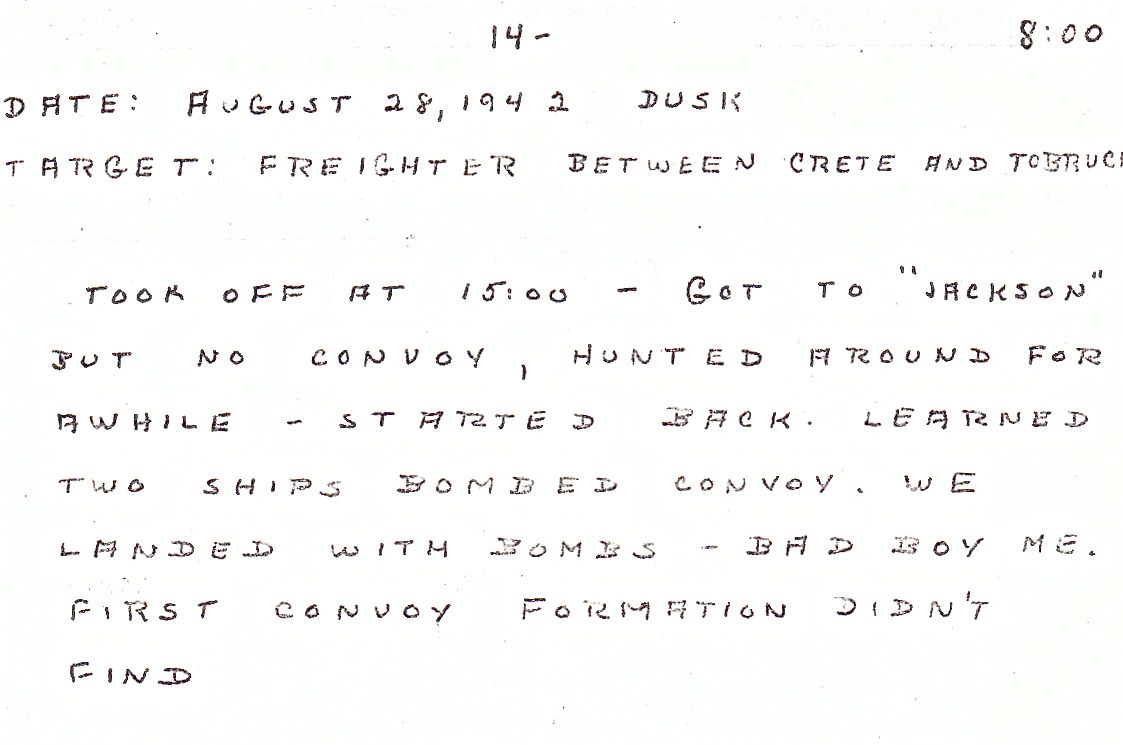 14- 8:00
DATE: AUGUST 28, 1942 DUSK
TARGET: FREIGHTER BETWEEN CRETE AND TOBRUCK
TOOK OFF AT 15:00 - GOT TO "JACKSON"
BUT NO CONVOY, HUNTED AROUND FOR
AWHILE - STARTED BACK. LEARNED
TWO SHIPS BOMBED CONVOY. WE
LANDED WITH BOMBS - BAD BOY ME.
FIRST CONVOY FORMATION DIDN'T
FIND